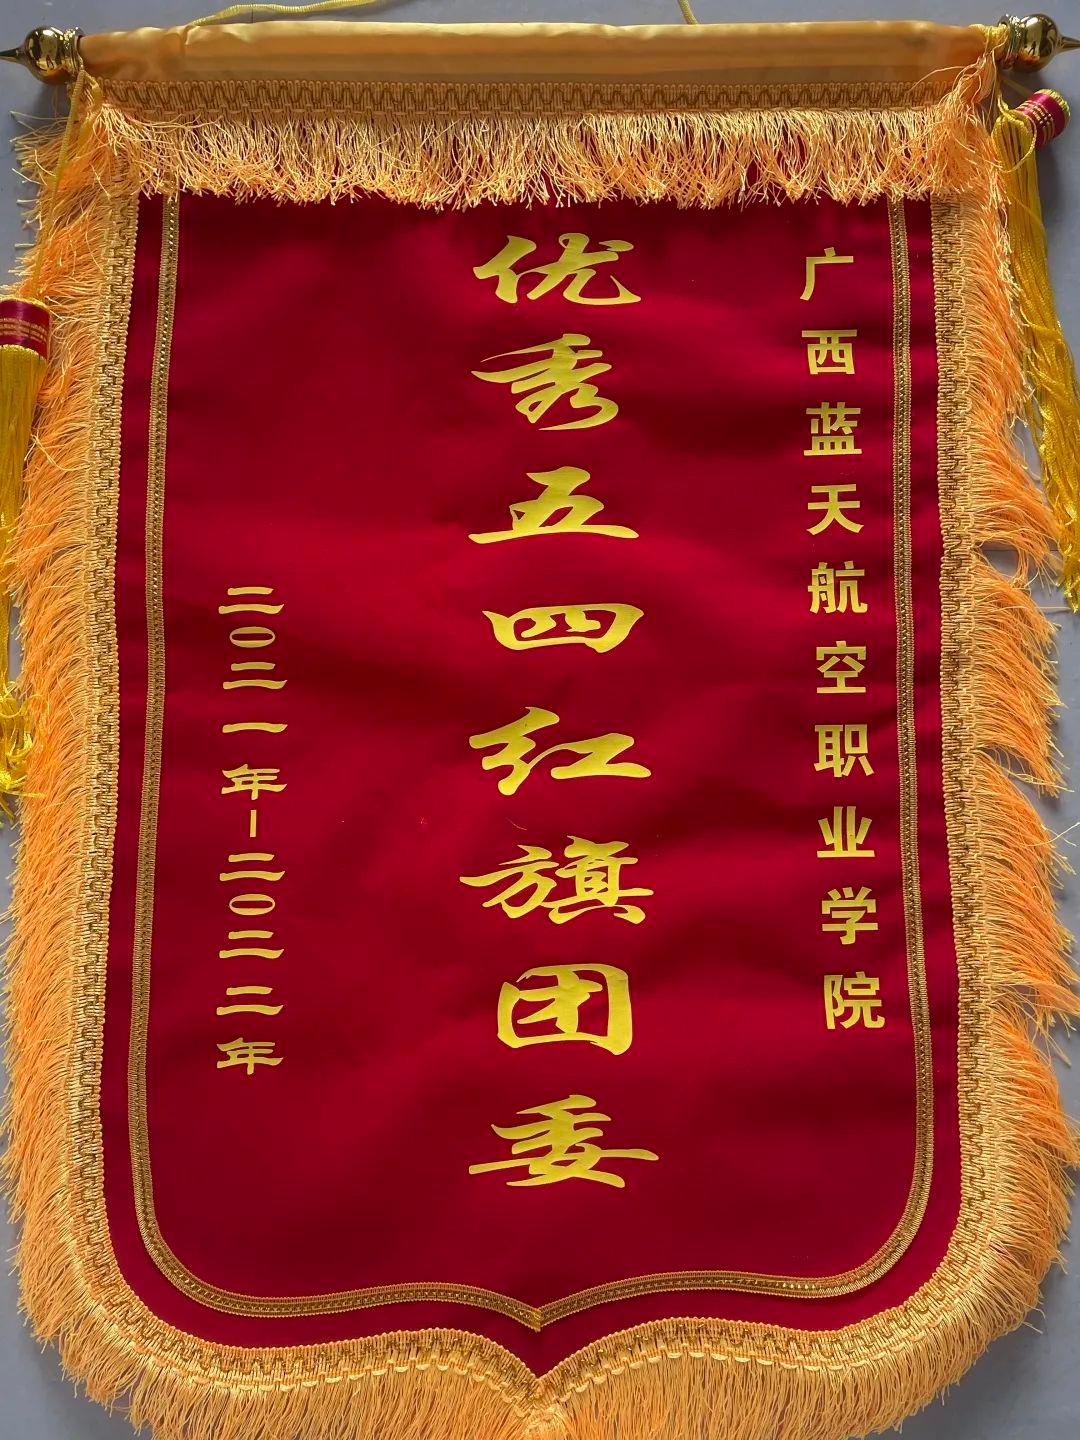 广西蓝天航空职业学院
优秀五四红旗团委
二〇二一年-二〇二二年